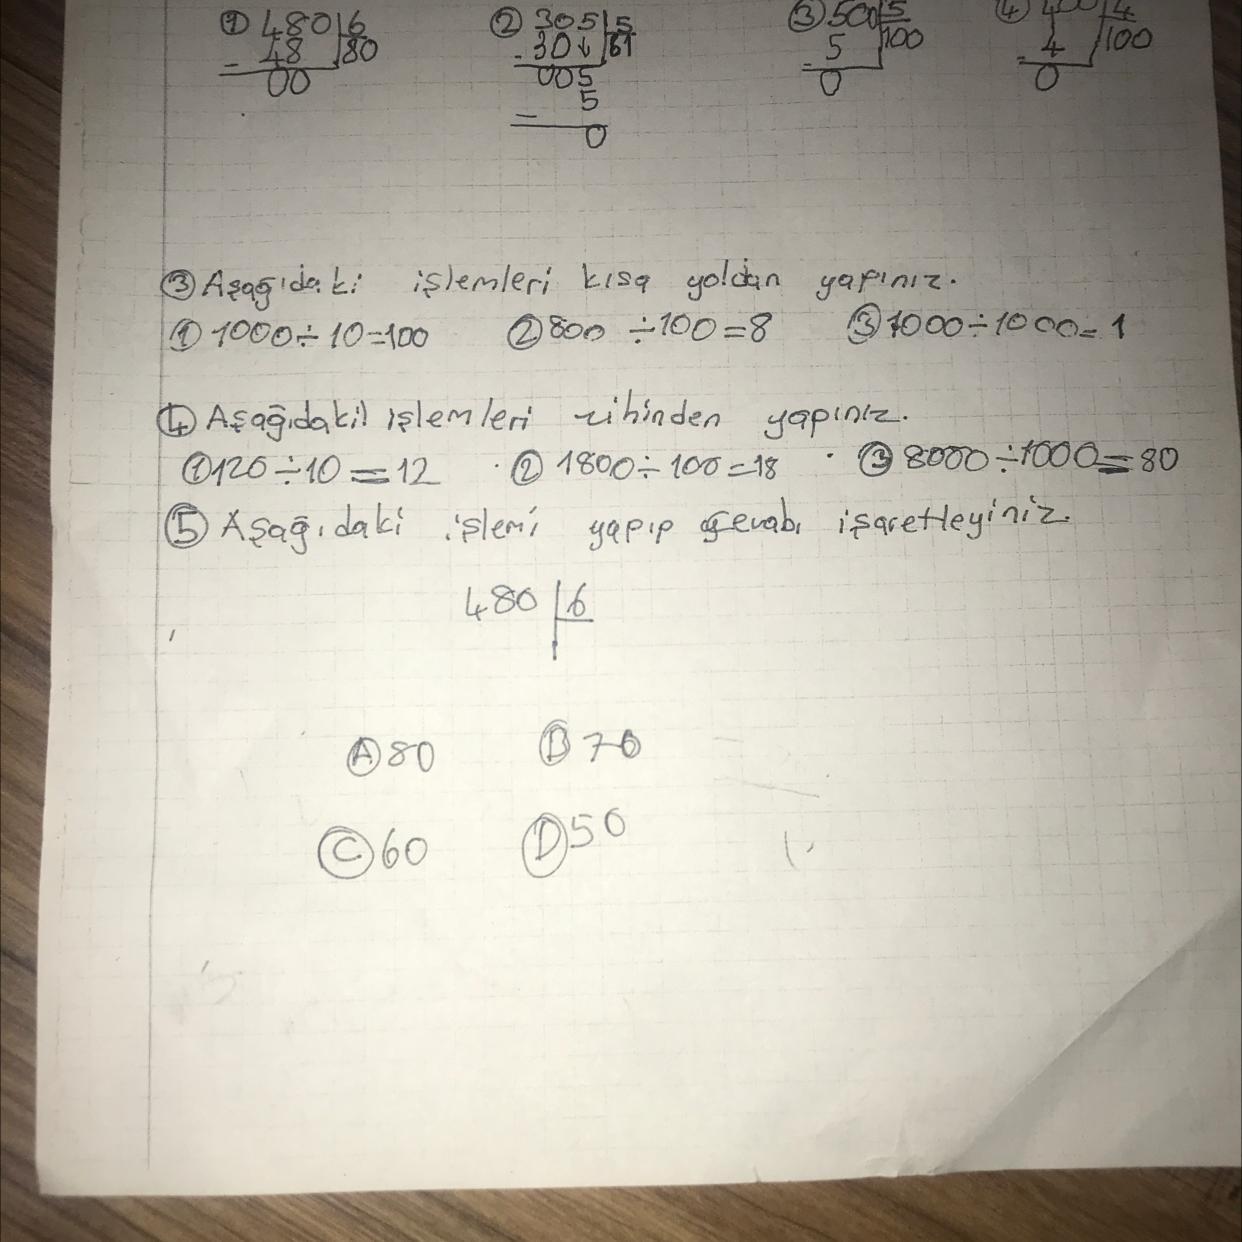 ① 480 6 ② 305 5 ③ 500 5 ④ 400 4
- 48 80 - 30↓ 61 - 5 100 - 4 100
00 005 0 0
- 5
0
③ Aşağıdaki işlemleri kısa yoldan yapınız.
① 1000÷10=100 ② 800 ÷100=8 ③ 1000÷1000=1
④ Aşağıdaki işlemleri zihinden yapınız.
① 120÷10=12 ② 1800÷100=18 ③ 8000÷1000=80
⑤ Aşağıdaki işlemi yapıp cevabı işaretleyiniz.
480 6
Ⓐ 80 Ⓑ 70
Ⓒ 60 Ⓓ 50